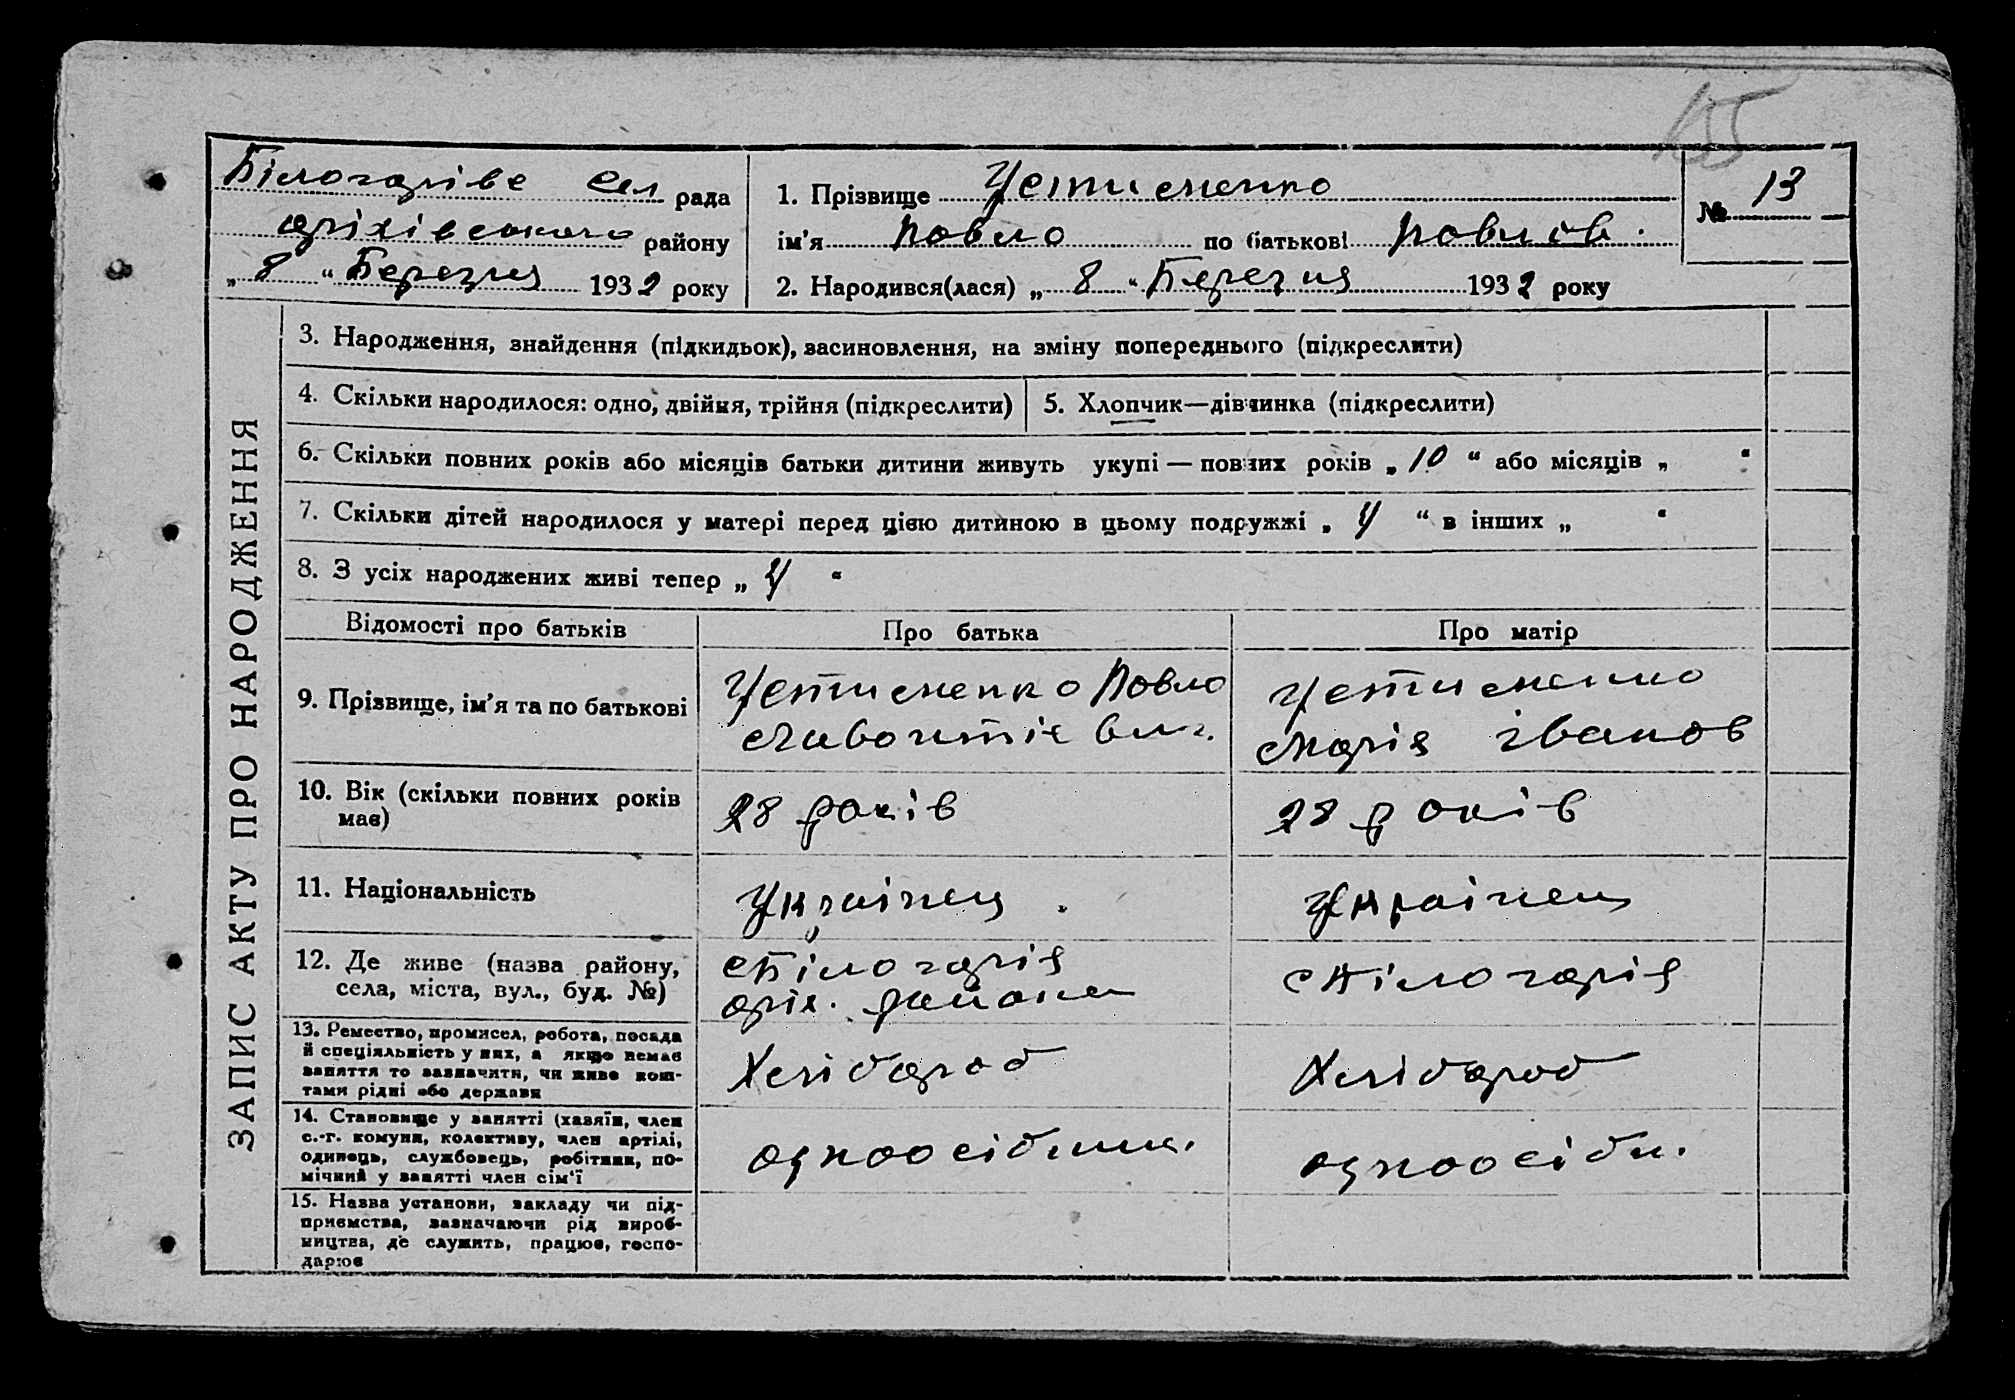 155
Білогарівс сел рада
оріхівського району
„ 8 “ Березня 1932 року
1. Прізвище Устименко
ім'я Павло по батькові Павлов.
№ 13
2. Народився(лася) „ 8 “ Березня 1932 року
ЗАПИС АКТУ ПРО НАРОДЖЕННЯ
3. Народження, знайдення (підкидьок), засиновлення, на зміну попереднього (підкреслити)
4. Скільки народилося: одно, двійня, трійня (підкреслити)
5. Хлопчик—дівчинка (підкреслити)
6. Скільки повних років або місяців батьки дитини живуть укупі — повних років „ 10 “ або місяців „ “
7. Скільки дітей народилося у матері перед цією дитиною в цьому подружжі „ 4 “ в інших „ “
8. З усіх народжених живі тепер „ 4 “
Відомості про батьків
Про батька
Про матір
9. Прізвище, ім'я та по батькові
Устименко Павло
Устименко
Марія Іванов
10. Вік (скільки повних років
має)
28 років
28 років
11. Національність
Українец
Українец
12. Де живе (назва району,
села, міста, вул., буд. №)
с Білогарія
оріх. района
с Білогарія
13. Ремество, промисел, робота, посада
й спеціяльність у них, а якщо немає
заняття то зазначити, чи живе кош-
тами рідні або держави
Хлібороб
Хлібороб
14. Становище у занятті (хазяїн, член
с.-г. комуни, колективу, член артілі,
одинець, службовець, робітник, по-
мічний у занятті член сім'ї
одноосібник.
одноосібн.
15. Назва установи, закладу чи під-
приємства, зазначаючи рід вироб-
ництва, де служить, працює, госпо-
дарює